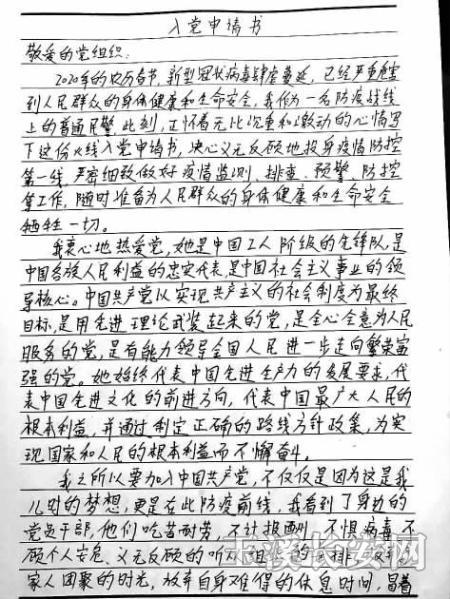 入党申请书
敬爱的党组织：
2020年的农历春节，新型冠状病毒肆虐蔓延，已经严重危害
到人民群众的身体健康和生命安全，我作为一名防疫战线
上的普通民警，此刻，正怀着无比沉重和激动的心情写
下这份火线入党申请书，决心义无反顾地投身疫情防控
第一线，严密细致做好疫情监测、排查、预警、防控
等工作，随时准备为人民群众的身体健康和生命安全
牺牲一切。
我衷心地热爱党，她是中国工人阶级的先锋队，是
中国各族人民利益的忠实代表，是中国社会主义事业的领
导核心。中国共产党以实现共产主义的社会制度为最终
目标，是用先进理论武装起来的党，是全心全意为人民
服务的党，是有能力领导全国人民进一步走向繁荣富
强的党。她始终代表中国先进生产力的发展要求，代
表中国先进文化的前进方向，代表中国最广大人民的
根本利益，并通过制定正确的路线方针政策，为实
现国家和人民的根本利益而不懈奋斗。
我之所以要加入中国共产党，不仅仅是因为这是我
儿时的梦想，更是在此防疫前线，我看到了身边的
党员干部，他们吃苦耐劳，不计报酬，不惧病毒，不
顾个人安危、义无反顾的听从组织的安排，放弃和
家人团聚的时光，放弃自身难得的休息时间，冒着
玉溪长安网